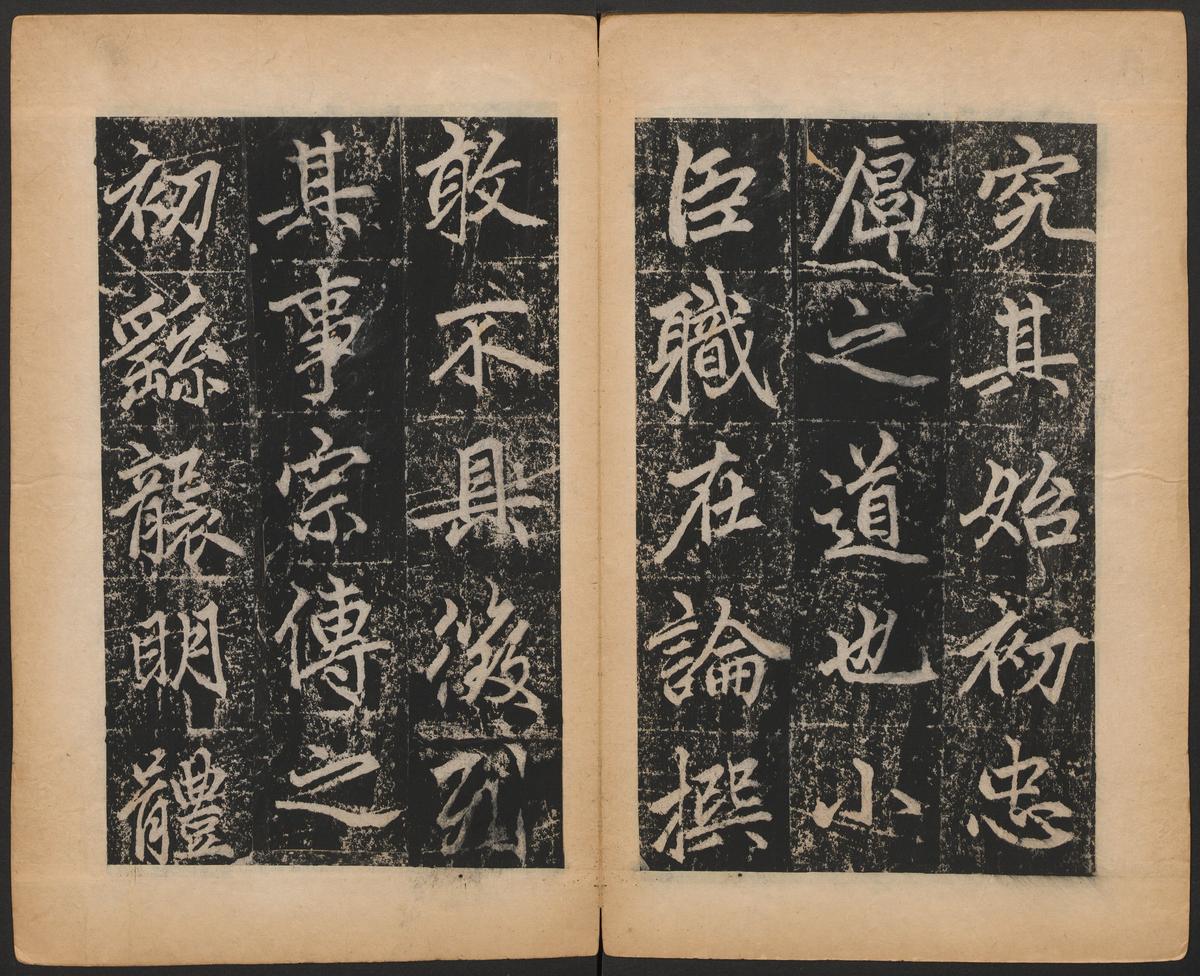 究其始初忠
厚之道也小
臣職在論撰
敢不具徵列
其事宗傳之
初繇襲明體